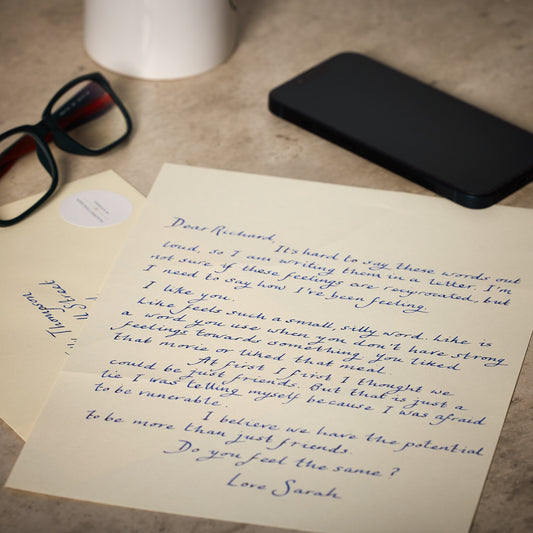 Dear Richard,
It's hard to say these words out
loud, so I am writing them in a letter. I'm
not sure if these feelings are reciprorated, but
I need to say how I've been feeling.
I like you.
Like feels such a small, silly word. Like is
a word you use when you don't have strong
feelings towards something. You liked
that movie or liked that meal.
At first I first I thought we
could be just friends. But that is just a
lie I was telling myself because I was afraid
to be vunerable.
I believe we have the potential
to be more than just friends.
Do you feel the same?
Love Sarah
Thompson
Street